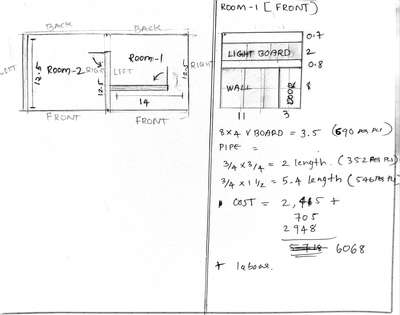 BACK BACK
LEFT 12.5 ROOM-2 RIGHT LEFT ROOM-1 12.5 RIGHT
12.5 14
FRONT FRONT
ROOM-1 [FRONT]
0.7
LIGHT BOARD 2
0.8
WALL DOOR 8
11 3
8x4 V BOARD = 3.5 (590 PER PCS)
PIPE =
3/4 x 3/4 = 2 length. (352 PER PCS)
3/4 x 1 1/2 = 5.4 length (546 PER PCS)
COST = 2,415 +
705
2948
5718 6068
+ labour.